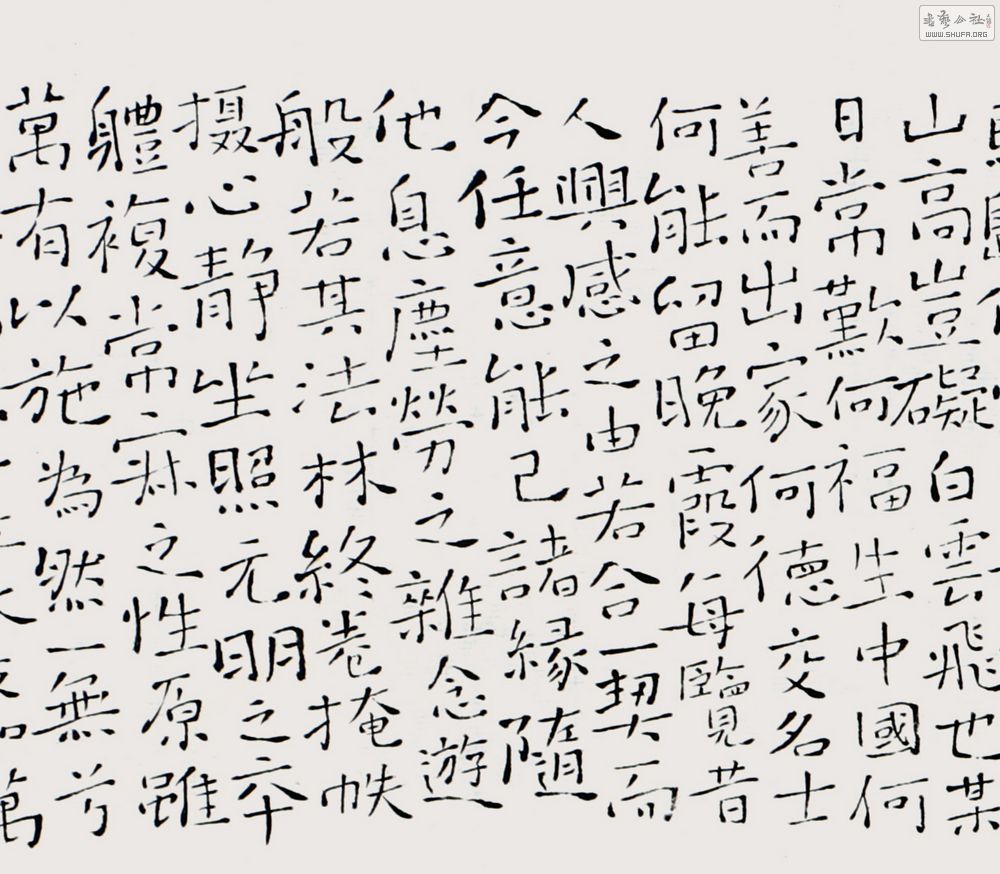 山高豈礙白雲飛也某
日常歎何福生中國何
善而出家何德交名士
何能留晚霞每覽昔
人興感之由若合一契而
今任意能己諸縁隨
他息塵勞之雜念遊
般若其法林終卷掩帙
摄心静坐照元明之卒
軆複常寂之性原雖
萬有以施為然一無兮
書藝公社
WWW.SHUFA.ORG